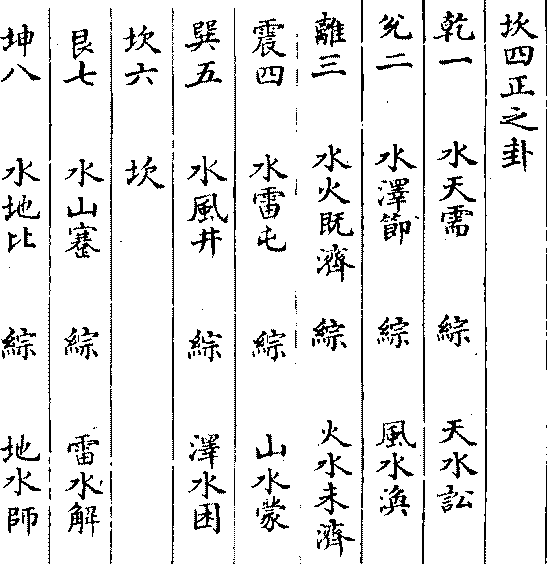 坎四正之卦
乾一 水天需 綜 天水訟
兊二 水澤節 綜 風水渙
離三 水火既濟 綜 火水未濟
震四 水雷屯 綜 山水蒙
巽五 水風井 綜 澤水困
坎六 坎
艮七 水山蹇 綜 雷水解
坤八 水地比 綜 地水師